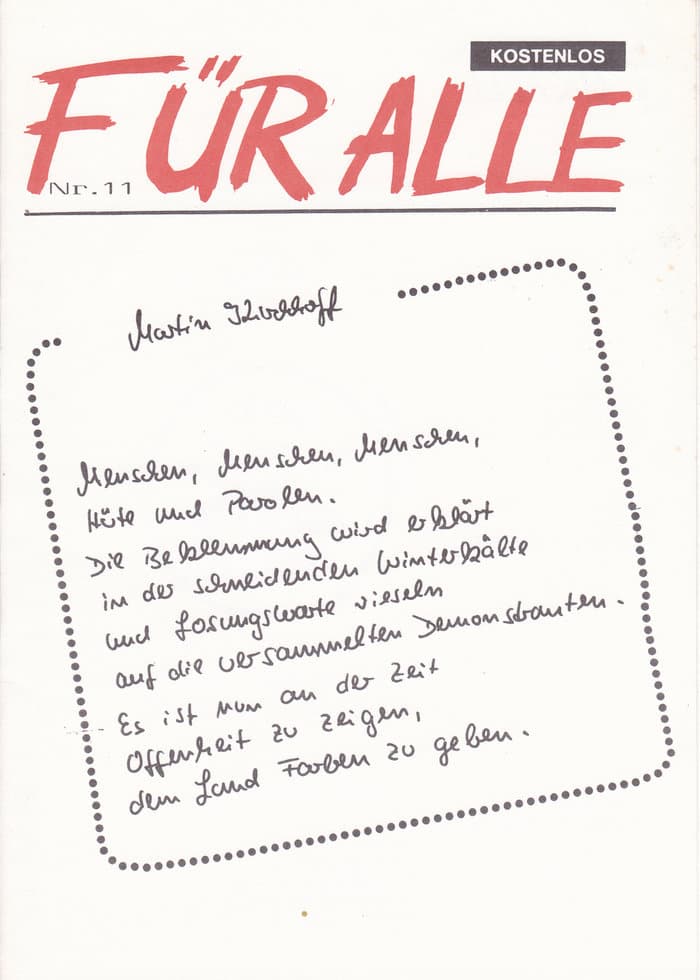 KOSTENLOS
FÜR ALLE
Nr.11
Martin Kirchhoff
Menschen, Menschen, Menschen,
Hüte und Parolen.
Die Beklemmung wird erklärt
in der schneidenden Winterkälte
und Losungsworte rieseln
auf die versammelten Demonstranten.
Es ist nun an der Zeit
Offenheit zu zeigen,
dem Land Farben zu geben.